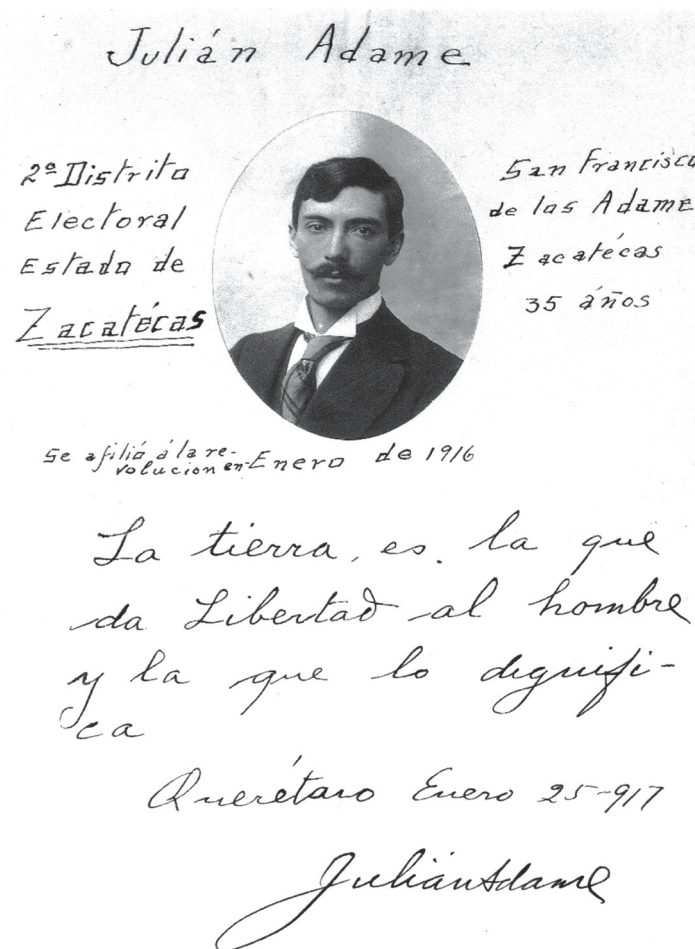 Julián Adame
2º Distrito
Electoral
Estado de
Zacatécas
San Francisco
de los Adame
Zacatécas
35 áños
Se afilió á la re-
volucion en Enero de 1916
La tierra, es. la que
da Libertad al hombre
y la que lo dignifi-
ca
Querétaro Enero 25-917
Julián Adame